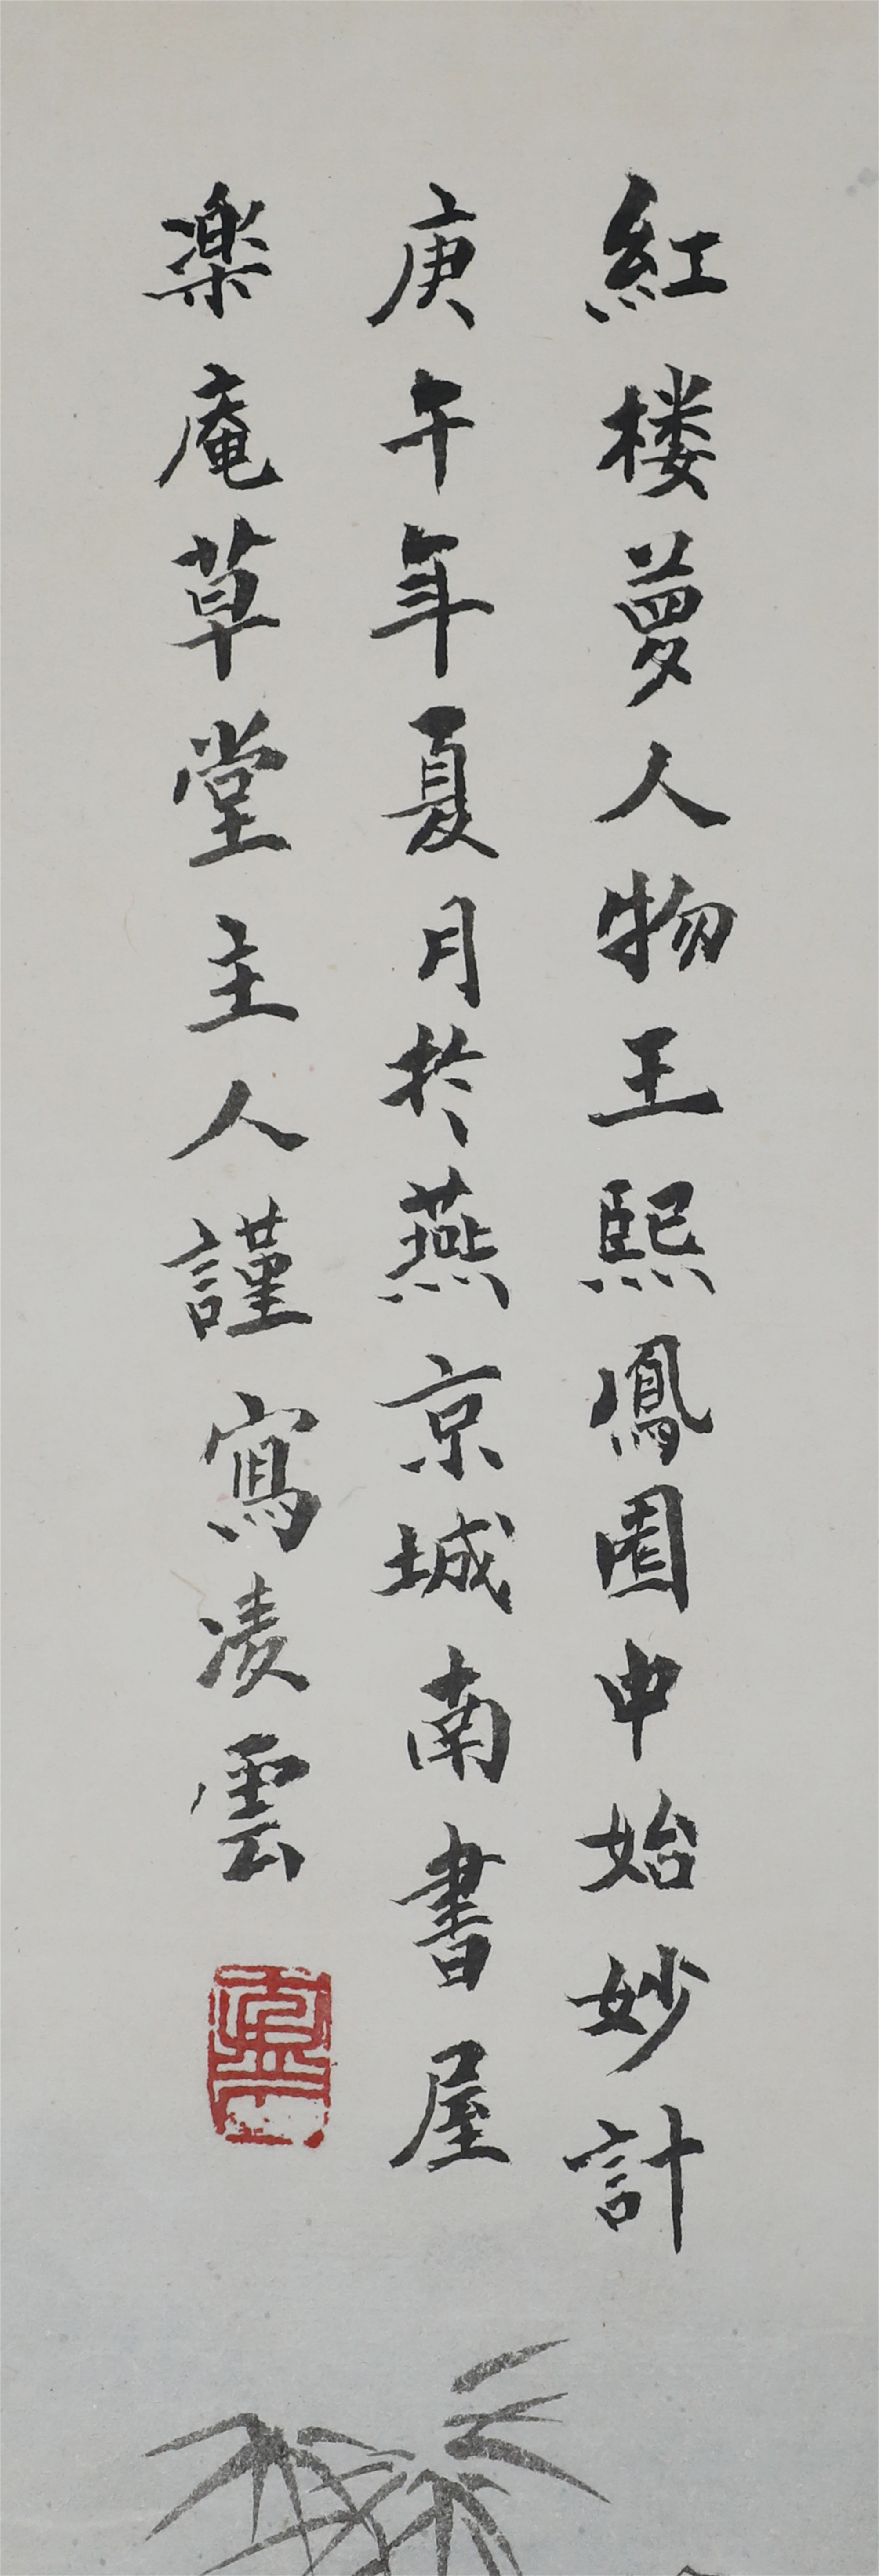 紅楼夢人物王熙鳳園中始妙計
庚午年夏月於燕京城南書屋
楽庵草堂主人謹寫凌雲